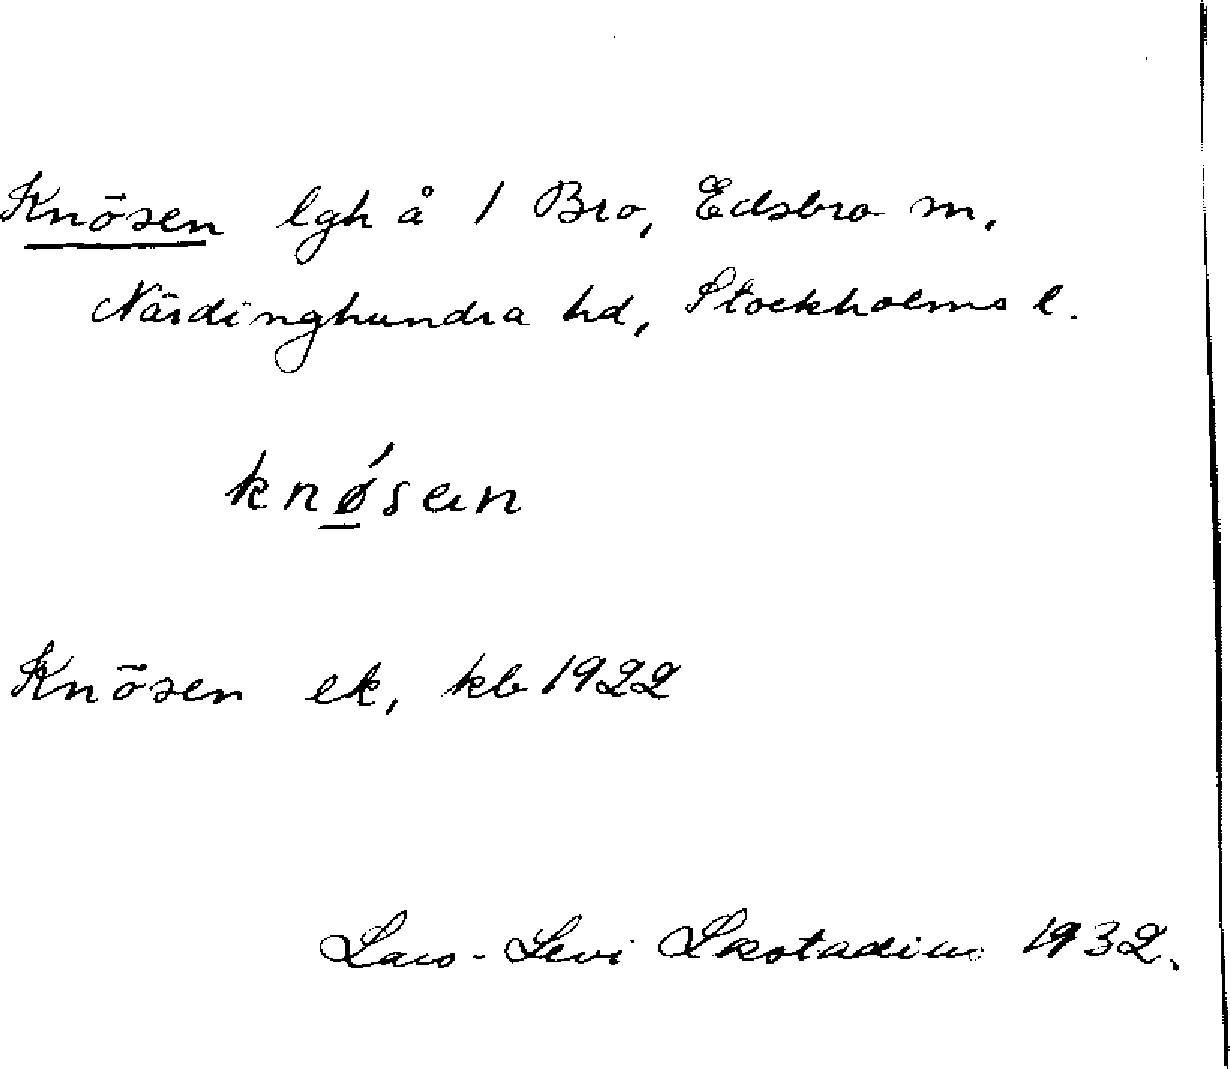 Knösen lgh å 1 Bro, Edsbro sn,
Närdinghundra hd, Stockholms l.
knǿ̲san
Knösen ek, kb 1922
Lars-Levi Læstadius 1932.